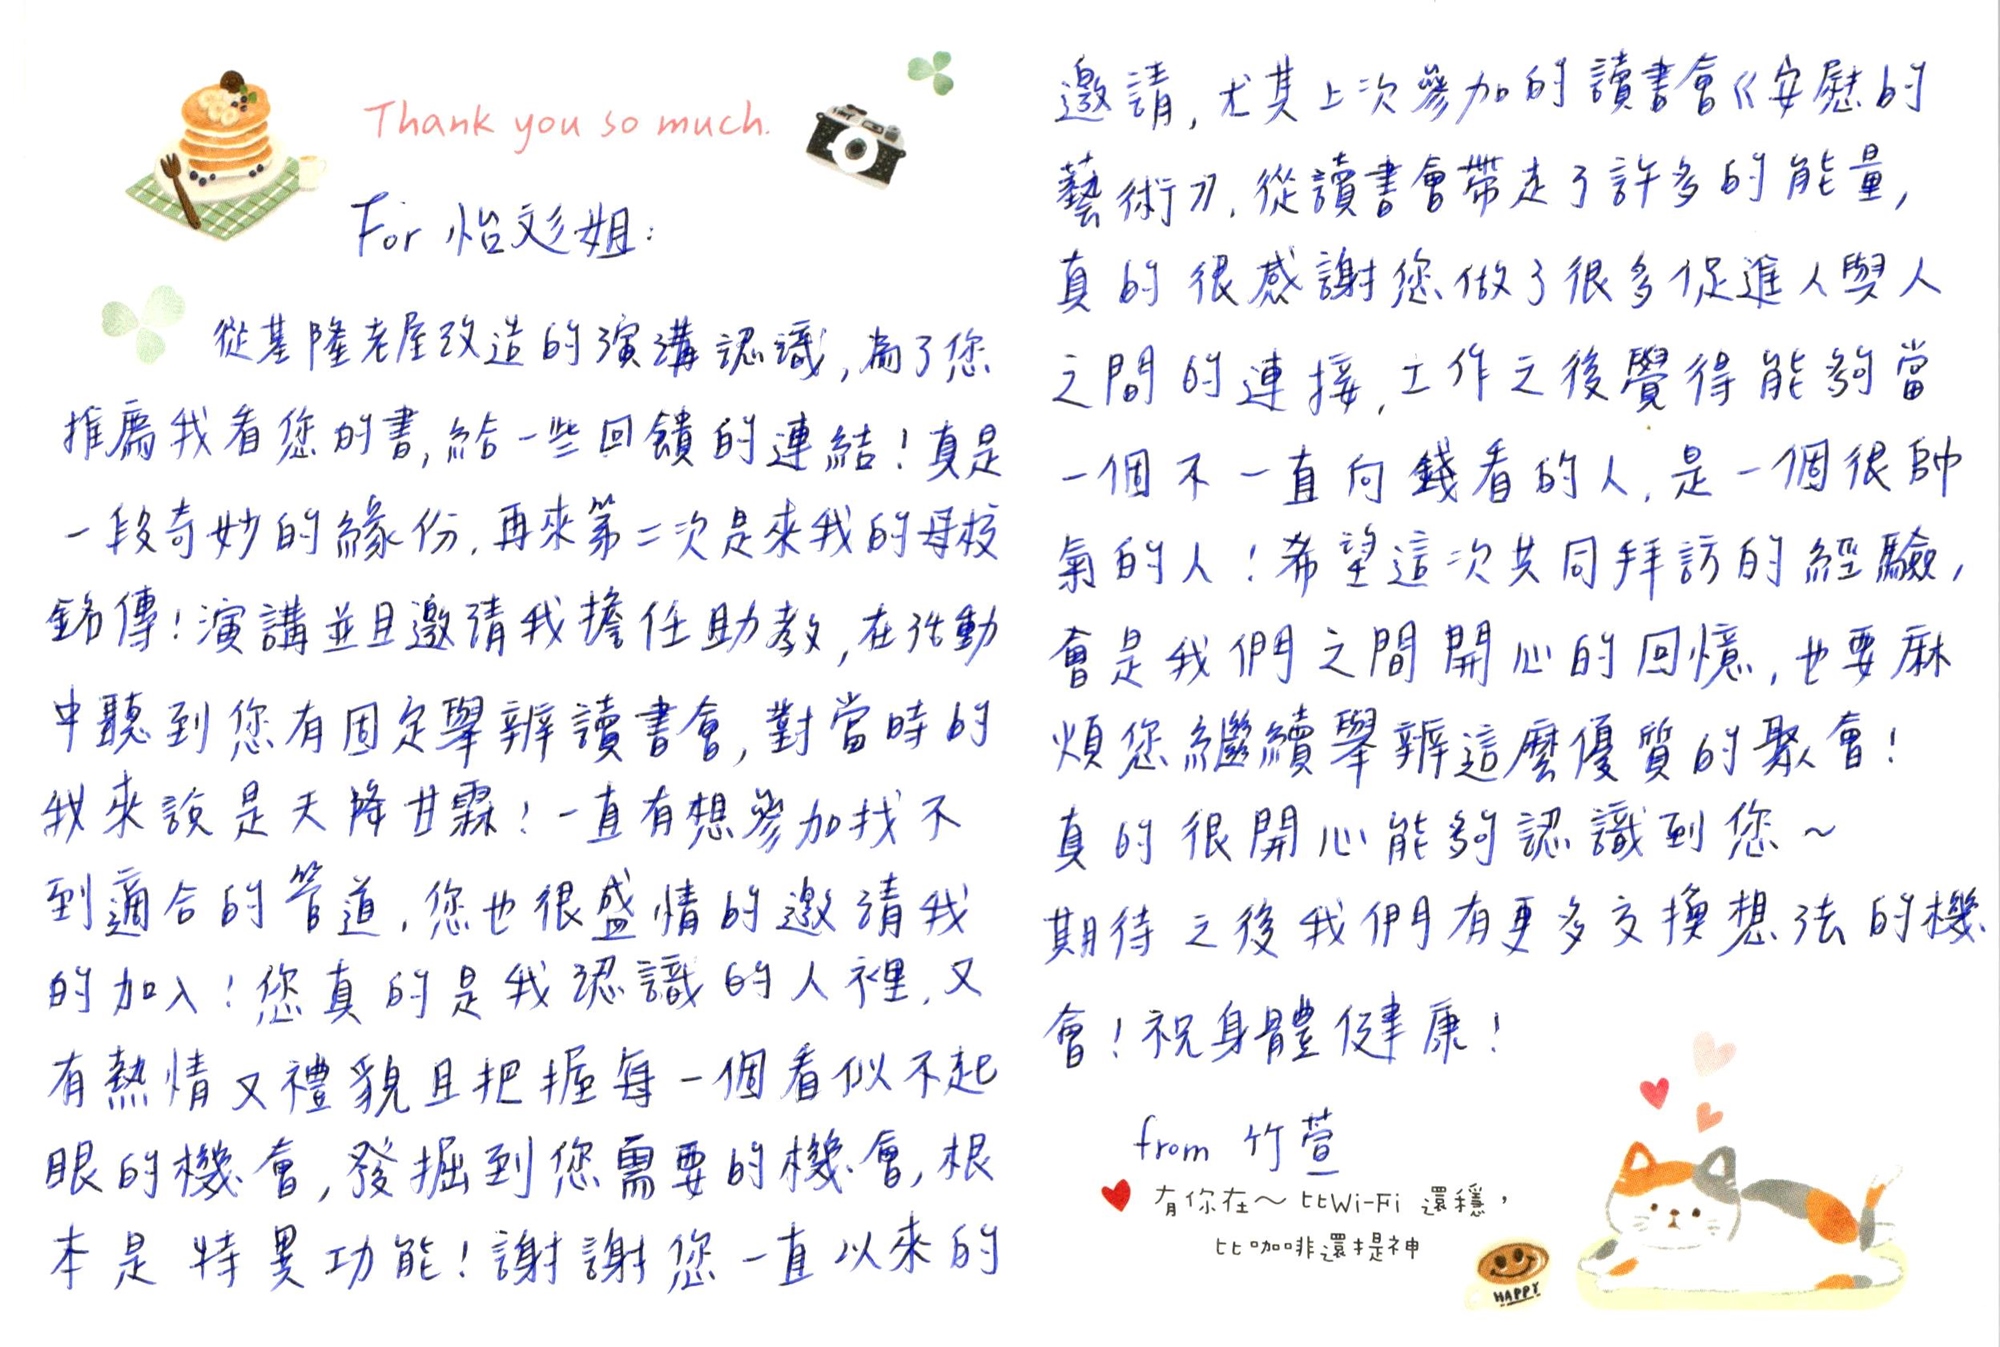 Thank you so much.
For 怡彣姐:
從基隆老屋改造的演講認識,為了您
推薦我看您的書,給一些回饋的連結!真是
一段奇妙的緣份,再來第二次是來我的母校
銘傳!演講並且邀請我擔任助教,在活動
中聽到您有固定舉辦讀書會,對當時的
我來說是天降甘霖!一直有想參加找不
到適合的管道,您也很盛情的邀請我
的加入!您真的是我認識的人裡,又
有熱情又禮貌且把握每一個看似不起
眼的機會,發掘到您需要的機會,根
本是特異功能!謝謝您一直以來的
邀請,尤其上次參加的讀書會《安慰的
藝術》,從讀書會帶走了許多的能量,
真的很感謝您做了很多促進人與人
之間的連接,工作之後覺得能夠當
一個不一直向錢看的人,是一個很帥
氣的人!希望這次共同拜訪的經驗,
會是我們之間開心的回憶,也要麻
煩您繼續舉辦這麼優質的聚會!
真的很開心能夠認識到您~
期待之後我們有更多交換想法的機
會!祝身體健康!
from 竹萱
有你在~比Wi-Fi還穩,
比咖啡還提神
HAPPY